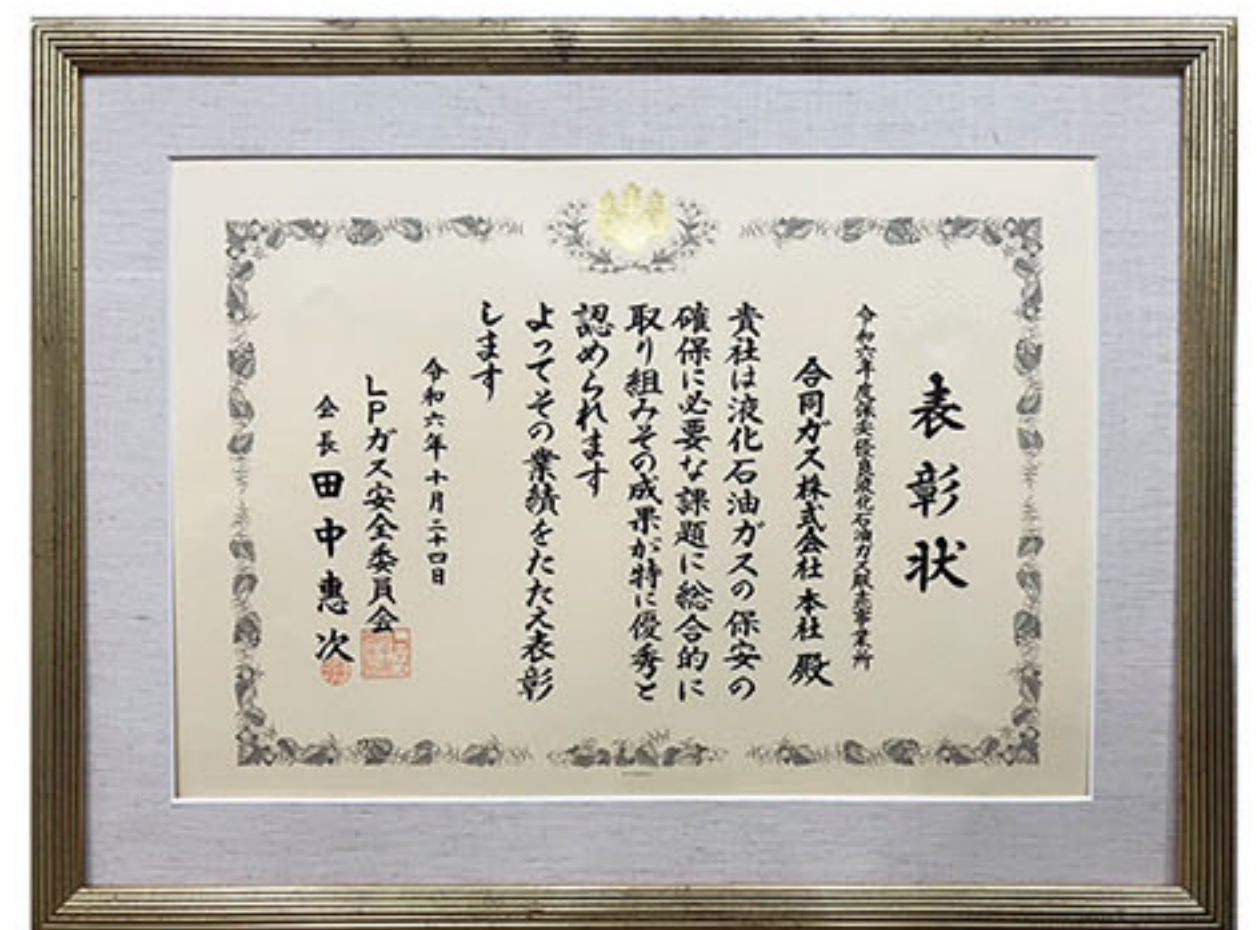 表彰状
令和六年度保安優良液化石油ガス販売事業所
合同ガス株式会社 本社 殿
貴社は液化石油ガスの保安の
確保に必要な課題に総合的に
取り組みその成果が特に優秀と
認められます
よってその業績をたたえ表彰
します
令和六年十月二十四日
LPガス安全委員会
会長 田中惠次